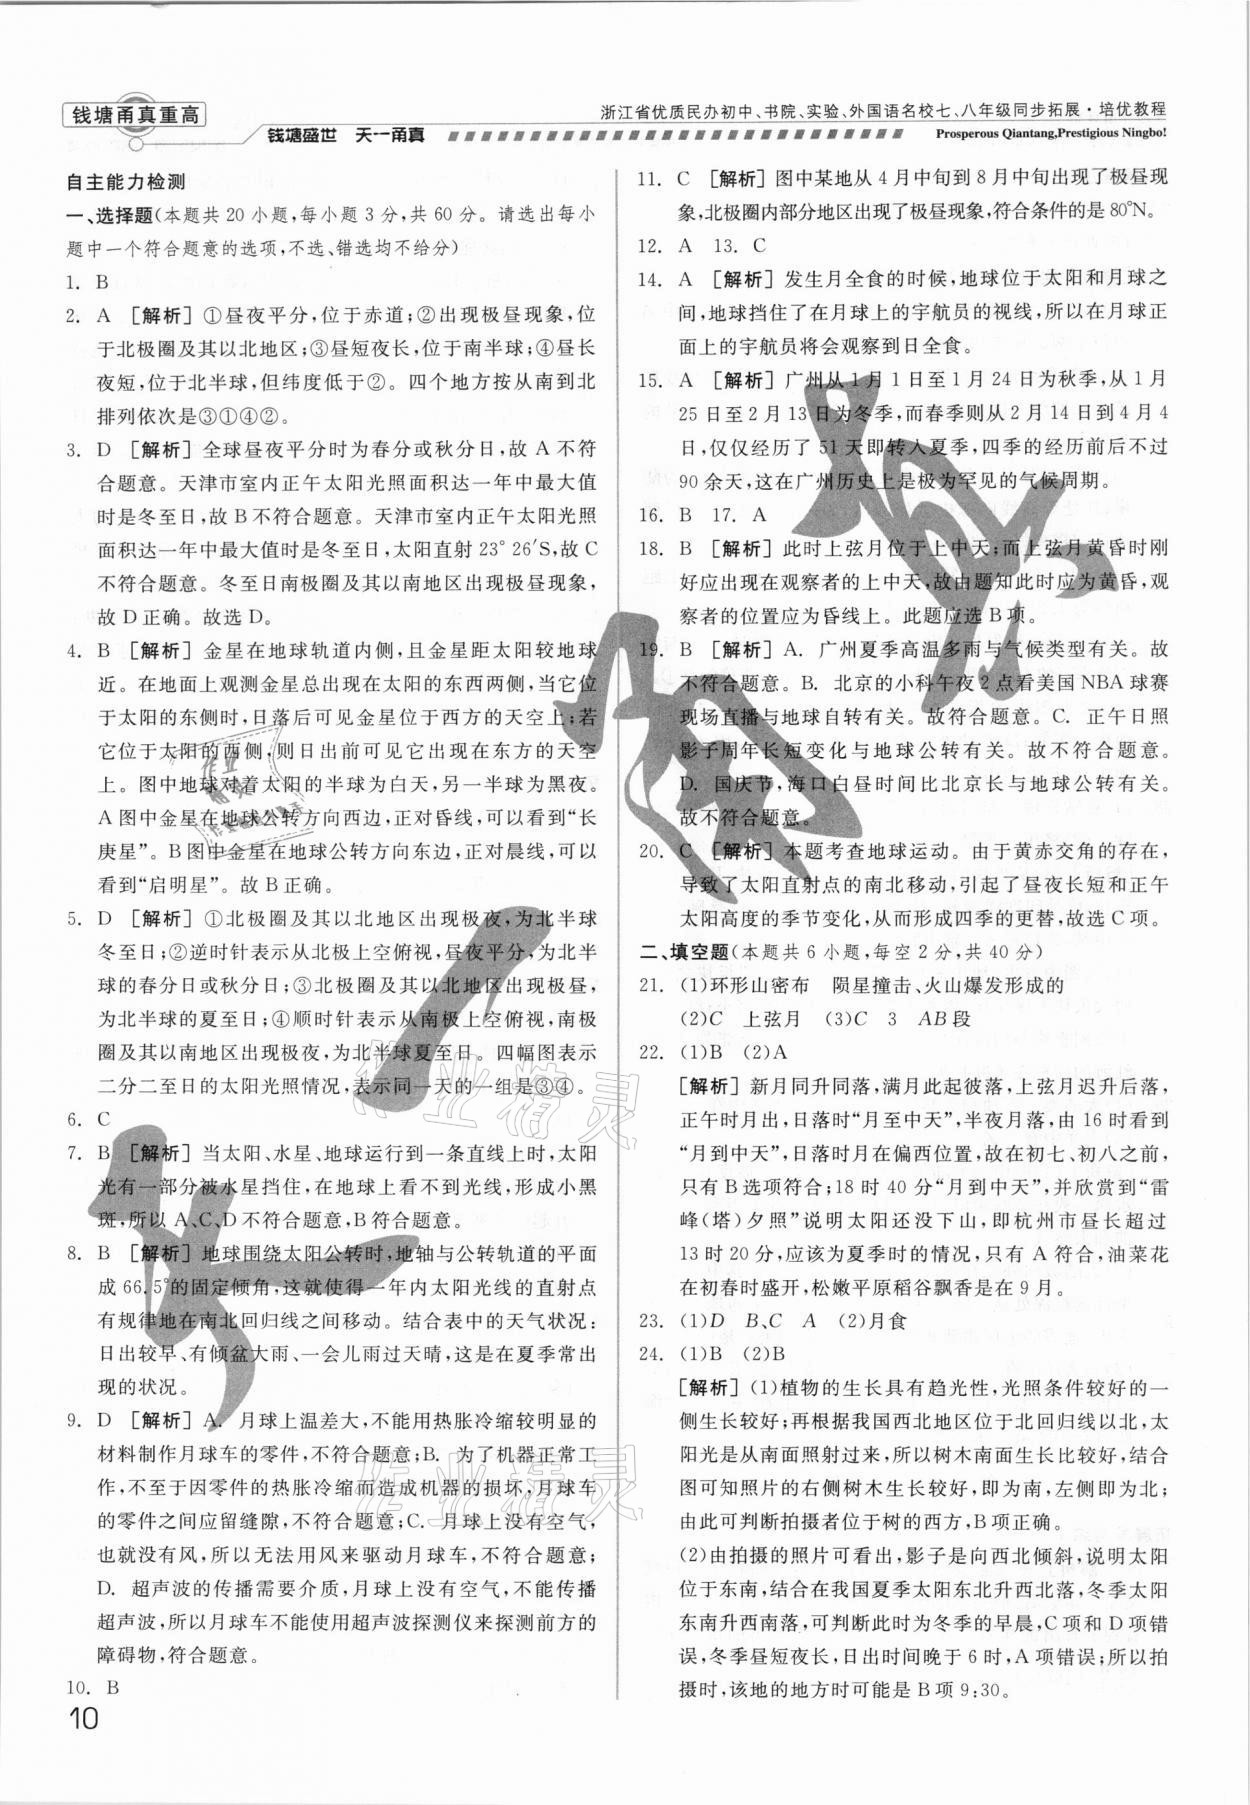 钱塘甬真重高
浙江省优质民办初中、书院、实验、外国语名校七、八年级同步拓展·培优教程
钱塘盛世 天一甬真
Prosperous Qiantang,Prestigious Ningbo!
自主能力检测
一、选择题(本题共20小题,每小题3分,共60分。请选出每小
题中一个符合题意的选项,不选、错选均不给分)
1. B
2. A [解析]①昼夜平分,位于赤道;②出现极昼现象,位
于北极圈及其以北地区;③昼短夜长,位于南半球;④昼长
夜短,位于北半球,但纬度低于②。四个地方按从南到北
排列依次是③①④②。
3. D [解析]全球昼夜平分时为春分或秋分日,故A不符
合题意。天津市室内正午太阳光照面积达一年中最大值
时是冬至日,故B不符合题意。天津市室内正午太阳光照
面积达一年中最大值时是冬至日,太阳直射23°26′S,故C
不符合题意。冬至日南极圈及其以南地区出现极昼现象,
故D正确。故选D。
4. B [解析]金星在地球轨道内侧,且金星距太阳较地球
近。在地面上观测金星总出现在太阳的东西两侧,当它位
于太阳的东侧时,日落后可见金星位于西方的天空上;若
它位于太阳的西侧,则日出前可见它出现在东方的天空
上。图中地球对着太阳的半球为白天,另一半球为黑夜。
A图中金星在地球公转方向西边,正对昏线,可以看到“长
庚星”。B图中金星在地球公转方向东边,正对晨线,可以
看到“启明星”。故B正确。
5. D [解析]①北极圈及其以北地区出现极夜,为北半球
冬至日;②逆时针表示从北极上空俯视,昼夜平分,为北半
球的春分日或秋分日;③北极圈及其以北地区出现极昼,
为北半球的夏至日;④顺时针表示从南极上空俯视,南极
圈及其以南地区出现极夜,为北半球夏至日。四幅图表示
二分二至日的太阳光照情况,表示同一天的一组是③④。
6. C
7. B [解析]当太阳、水星、地球运行到一条直线上时,太阳
光有一部分被水星挡住,在地球上看不到光线,形成小黑
斑,所以A、C、D不符合题意,B符合题意。
8. B [解析]地球围绕太阳公转时,地轴与公转轨道的平面
成66.5°的固定倾角,这就使得一年内太阳光线的直射点
有规律地在南北回归线之间移动。结合表中的天气状况:
日出较早、有倾盆大雨、一会儿雨过天晴,这是在夏季常出
现的状况。
9. D [解析]A. 月球上温差大,不能用热胀冷缩较明显的
材料制作月球车的零件,不符合题意;B. 为了机器正常工
作,不至于因零件的热胀冷缩而造成机器的损坏,月球车
的零件之间应留缝隙,不符合题意;C. 月球上没有空气,
也就没有风,所以无法用风来驱动月球车,不符合题意;
D. 超声波的传播需要介质,月球上没有空气,不能传播
超声波,所以月球车不能使用超声波探测仪来探测前方的
障碍物,符合题意。
10. B
10
11. C [解析]图中某地从4月中旬到8月中旬出现了极昼现
象,北极圈内部分地区出现了极昼现象,符合条件的是80°N。
12. A 13. C
14. A [解析]发生月全食的时候,地球位于太阳和月球之
间,地球挡住了在月球上的宇航员的视线,所以在月球正
面上的宇航员将会观察到日全食。
15. A [解析]广州从1月1日至1月24日为秋季,从1月
25日至2月13日为冬季,而春季则从2月14日到4月4
日,仅仅经历了51天即转入夏季,四季的经历前后不过
90余天,这在广州历史上是极为罕见的气候周期。
16. B 17. A
18. B [解析]此时上弦月位于上中天;而上弦月黄昏时刚
好应出现在观察者的上中天,故由题知此时应为黄昏,观
察者的位置应为昏线上。此题应选B项。
19. B [解析]A. 广州夏季高温多雨与气候类型有关。故
不符合题意。B. 北京的小科午夜2点看美国NBA球赛
现场直播与地球自转有关。故符合题意。C. 正午日照
影子周年长短变化与地球公转有关。故不符合题意。
D. 国庆节,海口白昼时间比北京长与地球公转有关。
故不符合题意。
20. C [解析]本题考查地球运动。由于黄赤交角的存在,
导致了太阳直射点的南北移动,引起了昼夜长短和正午
太阳高度的季节变化,从而形成四季的更替,故选C项。
二、填空题(本题共6小题,每空2分,共40分)
21. (1)环形山密布 陨星撞击、火山爆发形成的
(2)C 上弦月 (3)C 3 AB段
22. (1)B (2)A
[解析]新月同升同落,满月此起彼落,上弦月迟升后落,
正午时月出,日落时“月至中天”,半夜月落,由16时看到
“月到中天”,日落时月在偏西位置,故在初七、初八之前,
只有B选项符合;18时40分“月到中天”,并欣赏到“雷
峰(塔)夕照”说明太阳还没下山,即杭州市昼长超过
13时20分,应该为夏季时的情况,只有A符合,油菜花
在初春时盛开,松嫩平原稻谷飘香是在9月。
23. (1)D B、C A (2)月食
24. (1)B (2)B
[解析](1)植物的生长具有趋光性,光照条件较好的一
侧生长较好;再根据我国西北地区位于北回归线以北,太
阳光是从南面照射过来,所以树木南面生长比较好,结合
图可知照片的右侧树木生长较好,即为南,左侧即为北;
由此可判断拍摄者位于树的西方,B项正确。
(2)由拍摄的照片可看出,影子是向西北倾斜,说明太阳
位于东南,结合在我国夏季太阳东北升西北落,冬季太阳
东南升西南落,可判断此时为冬季的早晨,C项和D项错
误,冬季昼短夜长,日出时间晚于6时,A项错误;所以拍
摄时,该地的地方时可能是B项9:30。
作业精灵
作业精灵